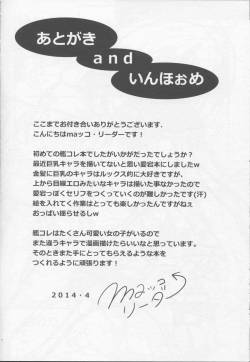 あとがき
and
いんほぉめ
ここまでお付き合いありがとうございます、
こんにちはmaッコ・リーダーです！
初めての艦コレ本でしたがいかがだったでしょうか？
最近巨乳キャラを描いてないと思い愛宕本にしましたw
金髪に巨乳のキャラはルックス的に大好きですが、
上から目線エロみたいなキャラは描いた事なかったので
愛宕っぽくセリフをつくっていくのが心配だったです(汗)
絵を入れてく作業はとっても楽しかったんですがねぇ
おっぱい揺らせるしw
艦コレはたくさん可愛い女の子がいるので
また違うキャラで漫画描けたらいいなと思っています。
そのときまた手にとってもらえるような本を
つくれるように頑張ります！
2014・4
maッコ
リーダー